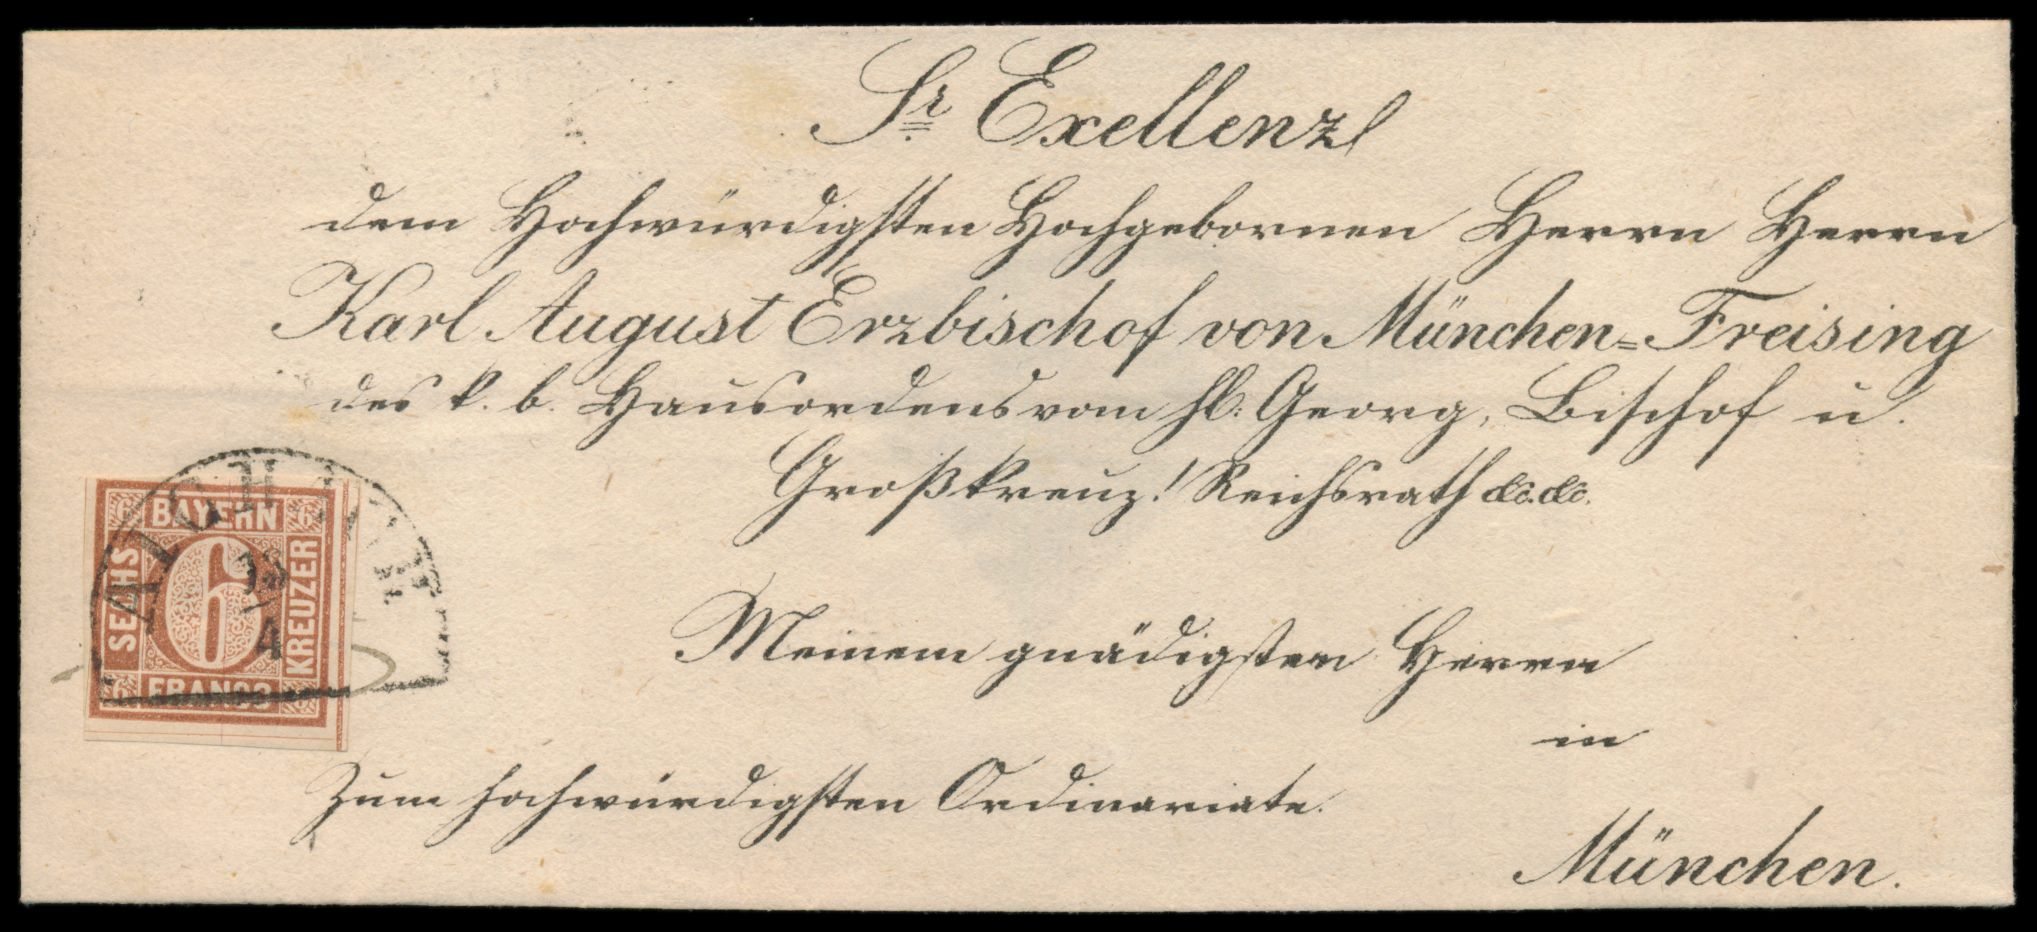 Sr Exellenz
dem Hochwürdigsten Hochgebornen Herrn Herrn
Karl August Erzbischof von München=Freising
des k. b. Hausordens vom hl: Georg, Bischof u.
Großkreuz! Reichsrath &c. &c.
Meinem gnädigsten Herrn
in
Zum hochwürdigsten Ordinariate.
München.
6 BAYERN 6
SECHS 6 KREUZER
6 FRANCO 6
AICHACH
4